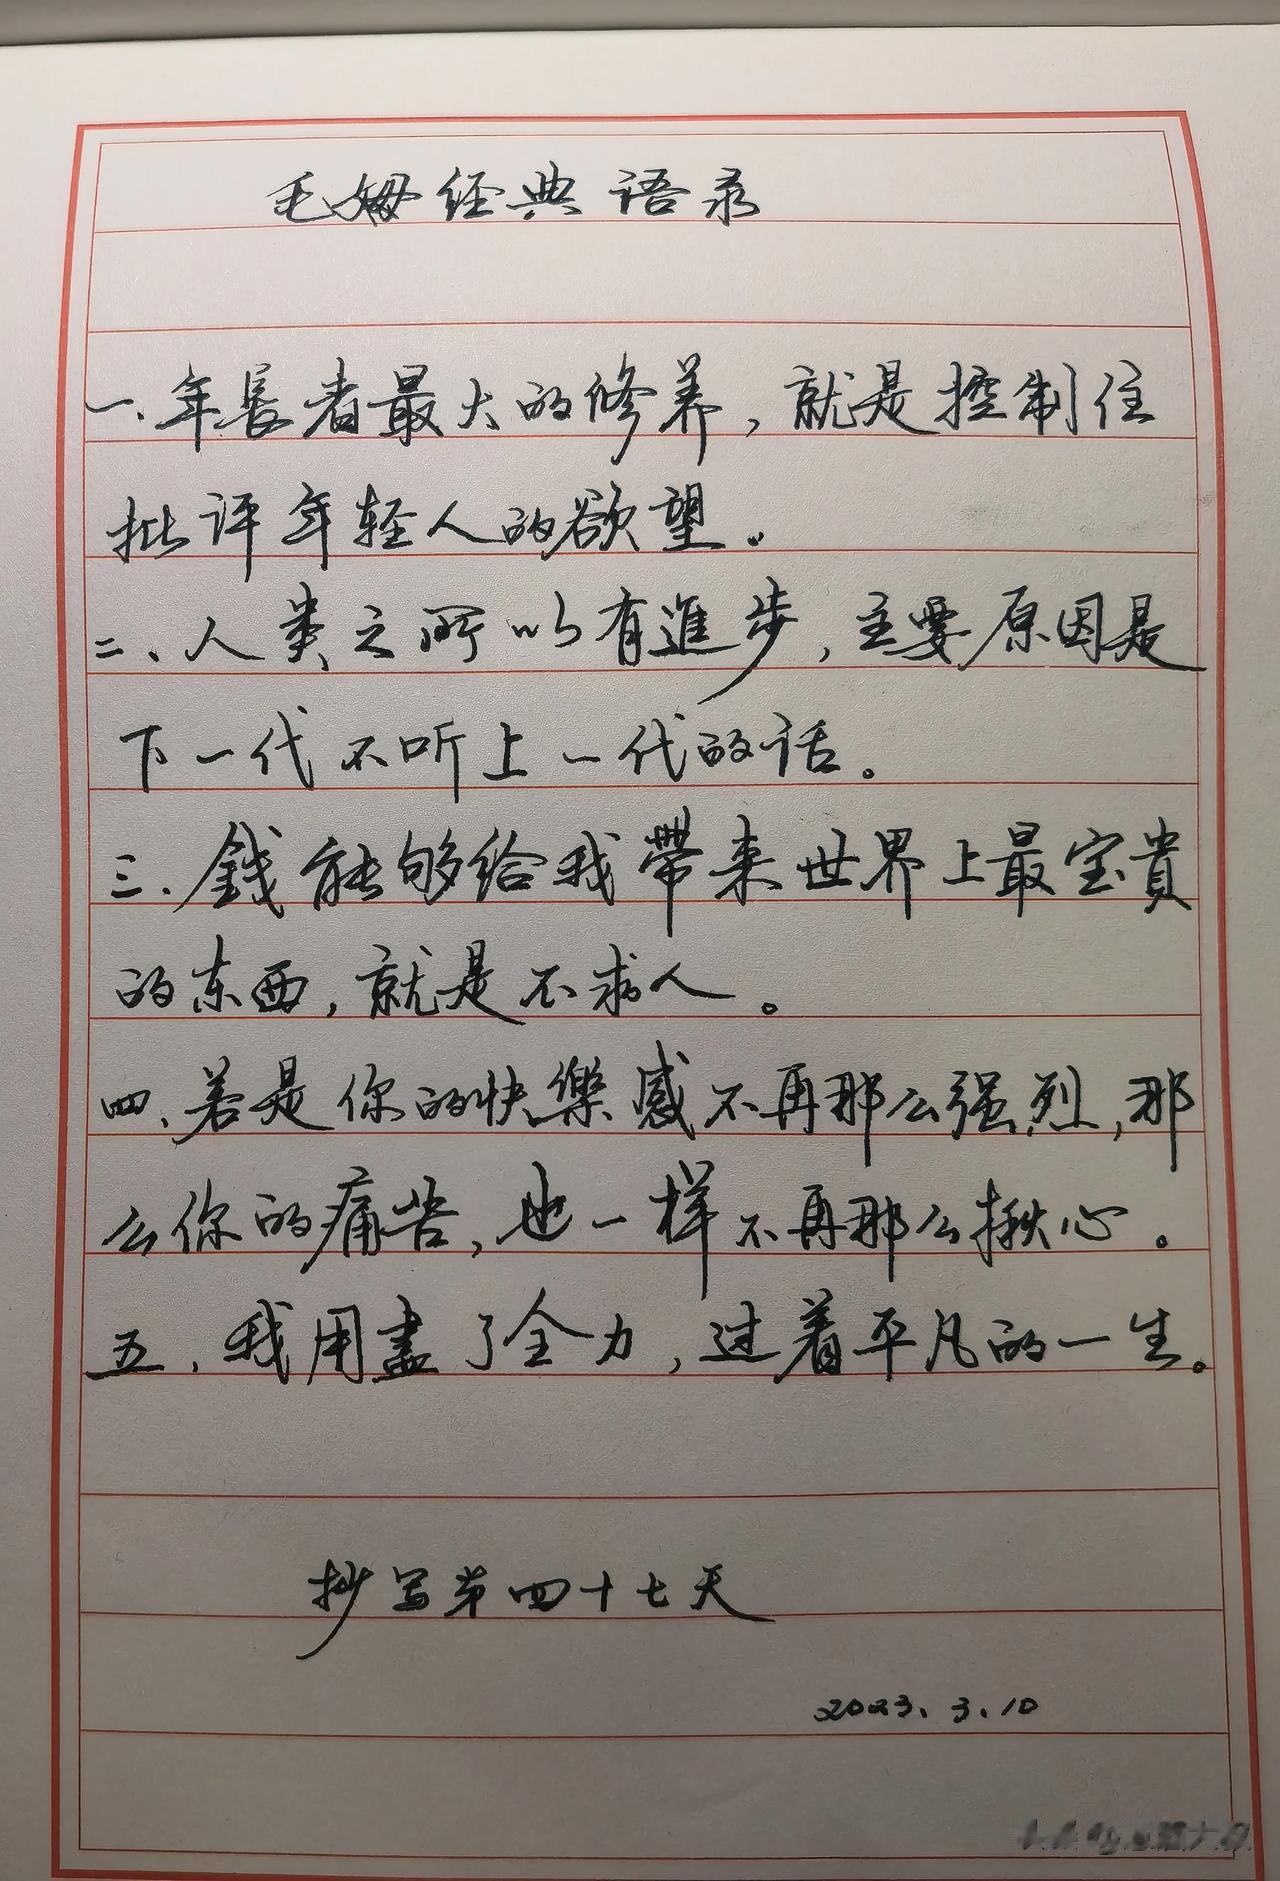 毛姆经典语录
一、年長者最大的修养，就是控制住
批评年轻人的欲望。
二、人类之所以有進步，主要原因是
下一代不听上一代的话。
三、錢能够给我帶来世界上最宝貴
的东西，就是不求人。
四、若是你的快樂感不再那么强烈，那
么你的痛苦，也一样不再那么揪心。
五、我用盡了全力，过着平凡的一生。
抄写第四十七天
2023.3.10